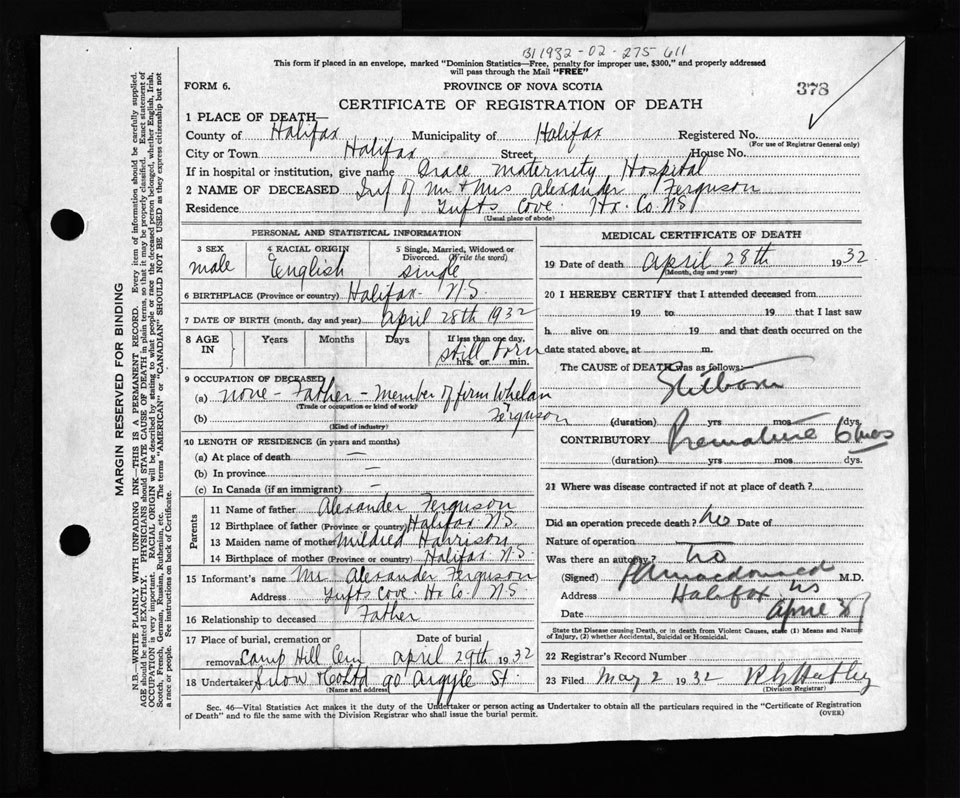 B1 1932-02-275-611
This form if placed in an envelope, marked "Dominion Statistics—Free, penalty for improper use, $300," and properly addressed
will pass through the Mail "FREE"
FORM 6. PROVINCE OF NOVA SCOTIA 378
CERTIFICATE OF REGISTRATION OF DEATH
1 PLACE OF DEATH—
County of Halifax Municipality of Halifax Registered No.
(For use of Registrar General only)
City or Town Halifax Street House No.
If in hospital or institution, give name Grace Maternity Hospital
2 NAME OF DECEASED Inf of Mr + Mrs Alexander Ferguson
Residence Tufts Cove. Hx. Co. N.S.
(Usual place of abode)
PERSONAL AND STATISTICAL INFORMATION
3 SEX 4 RACIAL ORIGIN 5 Single, Married, Widowed or
Divorced. (Write the word)
male English single
6 BIRTHPLACE (Province or country) Halifax N.S.
7 DATE OF BIRTH (month, day and year) April 28th 1932
8 AGE IN Years Months Days If less than one day,
still born
hrs. or min.
9 OCCUPATION OF DECEASED
(a) none - Father - member of firm Whelan
(Trade or occupation or kind of work)
(b) Ferguson
(Kind of industry)
10 LENGTH OF RESIDENCE (in years and months)
(a) At place of death —
(b) In province —
(c) In Canada (if an immigrant) —
Parents
11 Name of father Alexander Ferguson
12 Birthplace of father (Province or country) Halifax N.S.
13 Maiden name of mother Mildred Harrison
14 Birthplace of mother (Province or country) Halifax N.S.
15 Informant's name Mr Alexander Ferguson
Address Tufts Cove. Hx Co. N.S.
16 Relationship to deceased Father
17 Place of burial, cremation or Date of burial
removal Camp Hill Cem April 29th 1932
18 Undertaker Snow & Co Ltd 90 Argyle St.
(Name and address)
MEDICAL CERTIFICATE OF DEATH
19 Date of death April 28th 1932
(Month, day and year)
20 I HEREBY CERTIFY that I attended deceased from
19 to 19 that I last saw
h alive on 19 and that death occurred on the
date stated above, at m.
The CAUSE of DEATH was as follows:—
Stillborn
(duration) yrs mos dys.
CONTRIBUTORY Premature 6 mos
(duration) yrs mos dys.
21 Where was disease contracted if not at place of death?
Did an operation precede death? No Date of
Nature of operation —
Was there an autopsy? no
(Signed) M.D.
Address Halifax NS
Date April
State the Disease causing Death, or in death from Violent Causes, state (1) Means and Nature
of Injury, (2) whether Accidental, Suicidal or Homicidal.
22 Registrar's Record Number
23 Filed May 2 1932
(Division Registrar)
Sec. 46—Vital Statistics Act makes it the duty of the Undertaker or person acting as Undertaker to obtain all the particulars required in the "Certificate of Registration
of Death" and to file the same with the Division Registrar who shall issue the burial permit. (OVER)
MARGIN RESERVED FOR BINDING
N.B.—WRITE PLAINLY WITH UNFADING INK—THIS IS A PERMANENT RECORD. Every item of information should be carefully supplied.
AGE should be stated EXACTLY. PHYSICIANS should STATE CAUSE OF DEATH in plain terms, so that it may be properly classified. Exact statement of
OCCUPATION is very important. RACIAL ORIGIN will be described by stating to what people or race the deceased person belonged, whether English, Irish,
Scotch, French, German, Russian, Ruthenian, etc. The terms "AMERICAN" or "CANADIAN" SHOULD NOT BE USED as they express citizenship but not
a race or people. See instructions on back of Certificate.